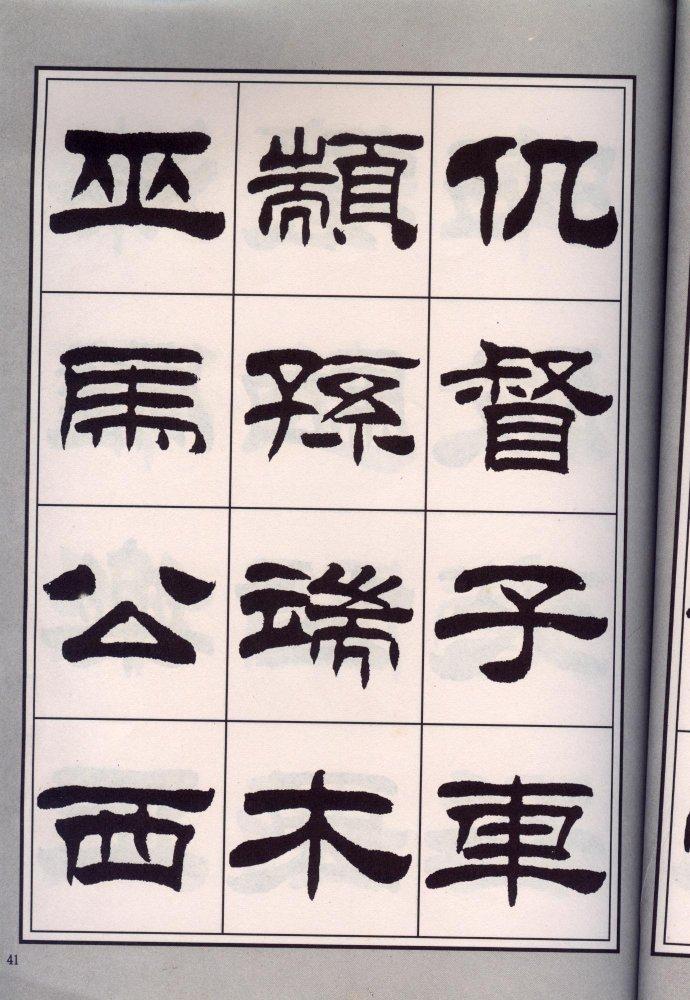 仉督子車
顓孫端木
巫馬公西
41